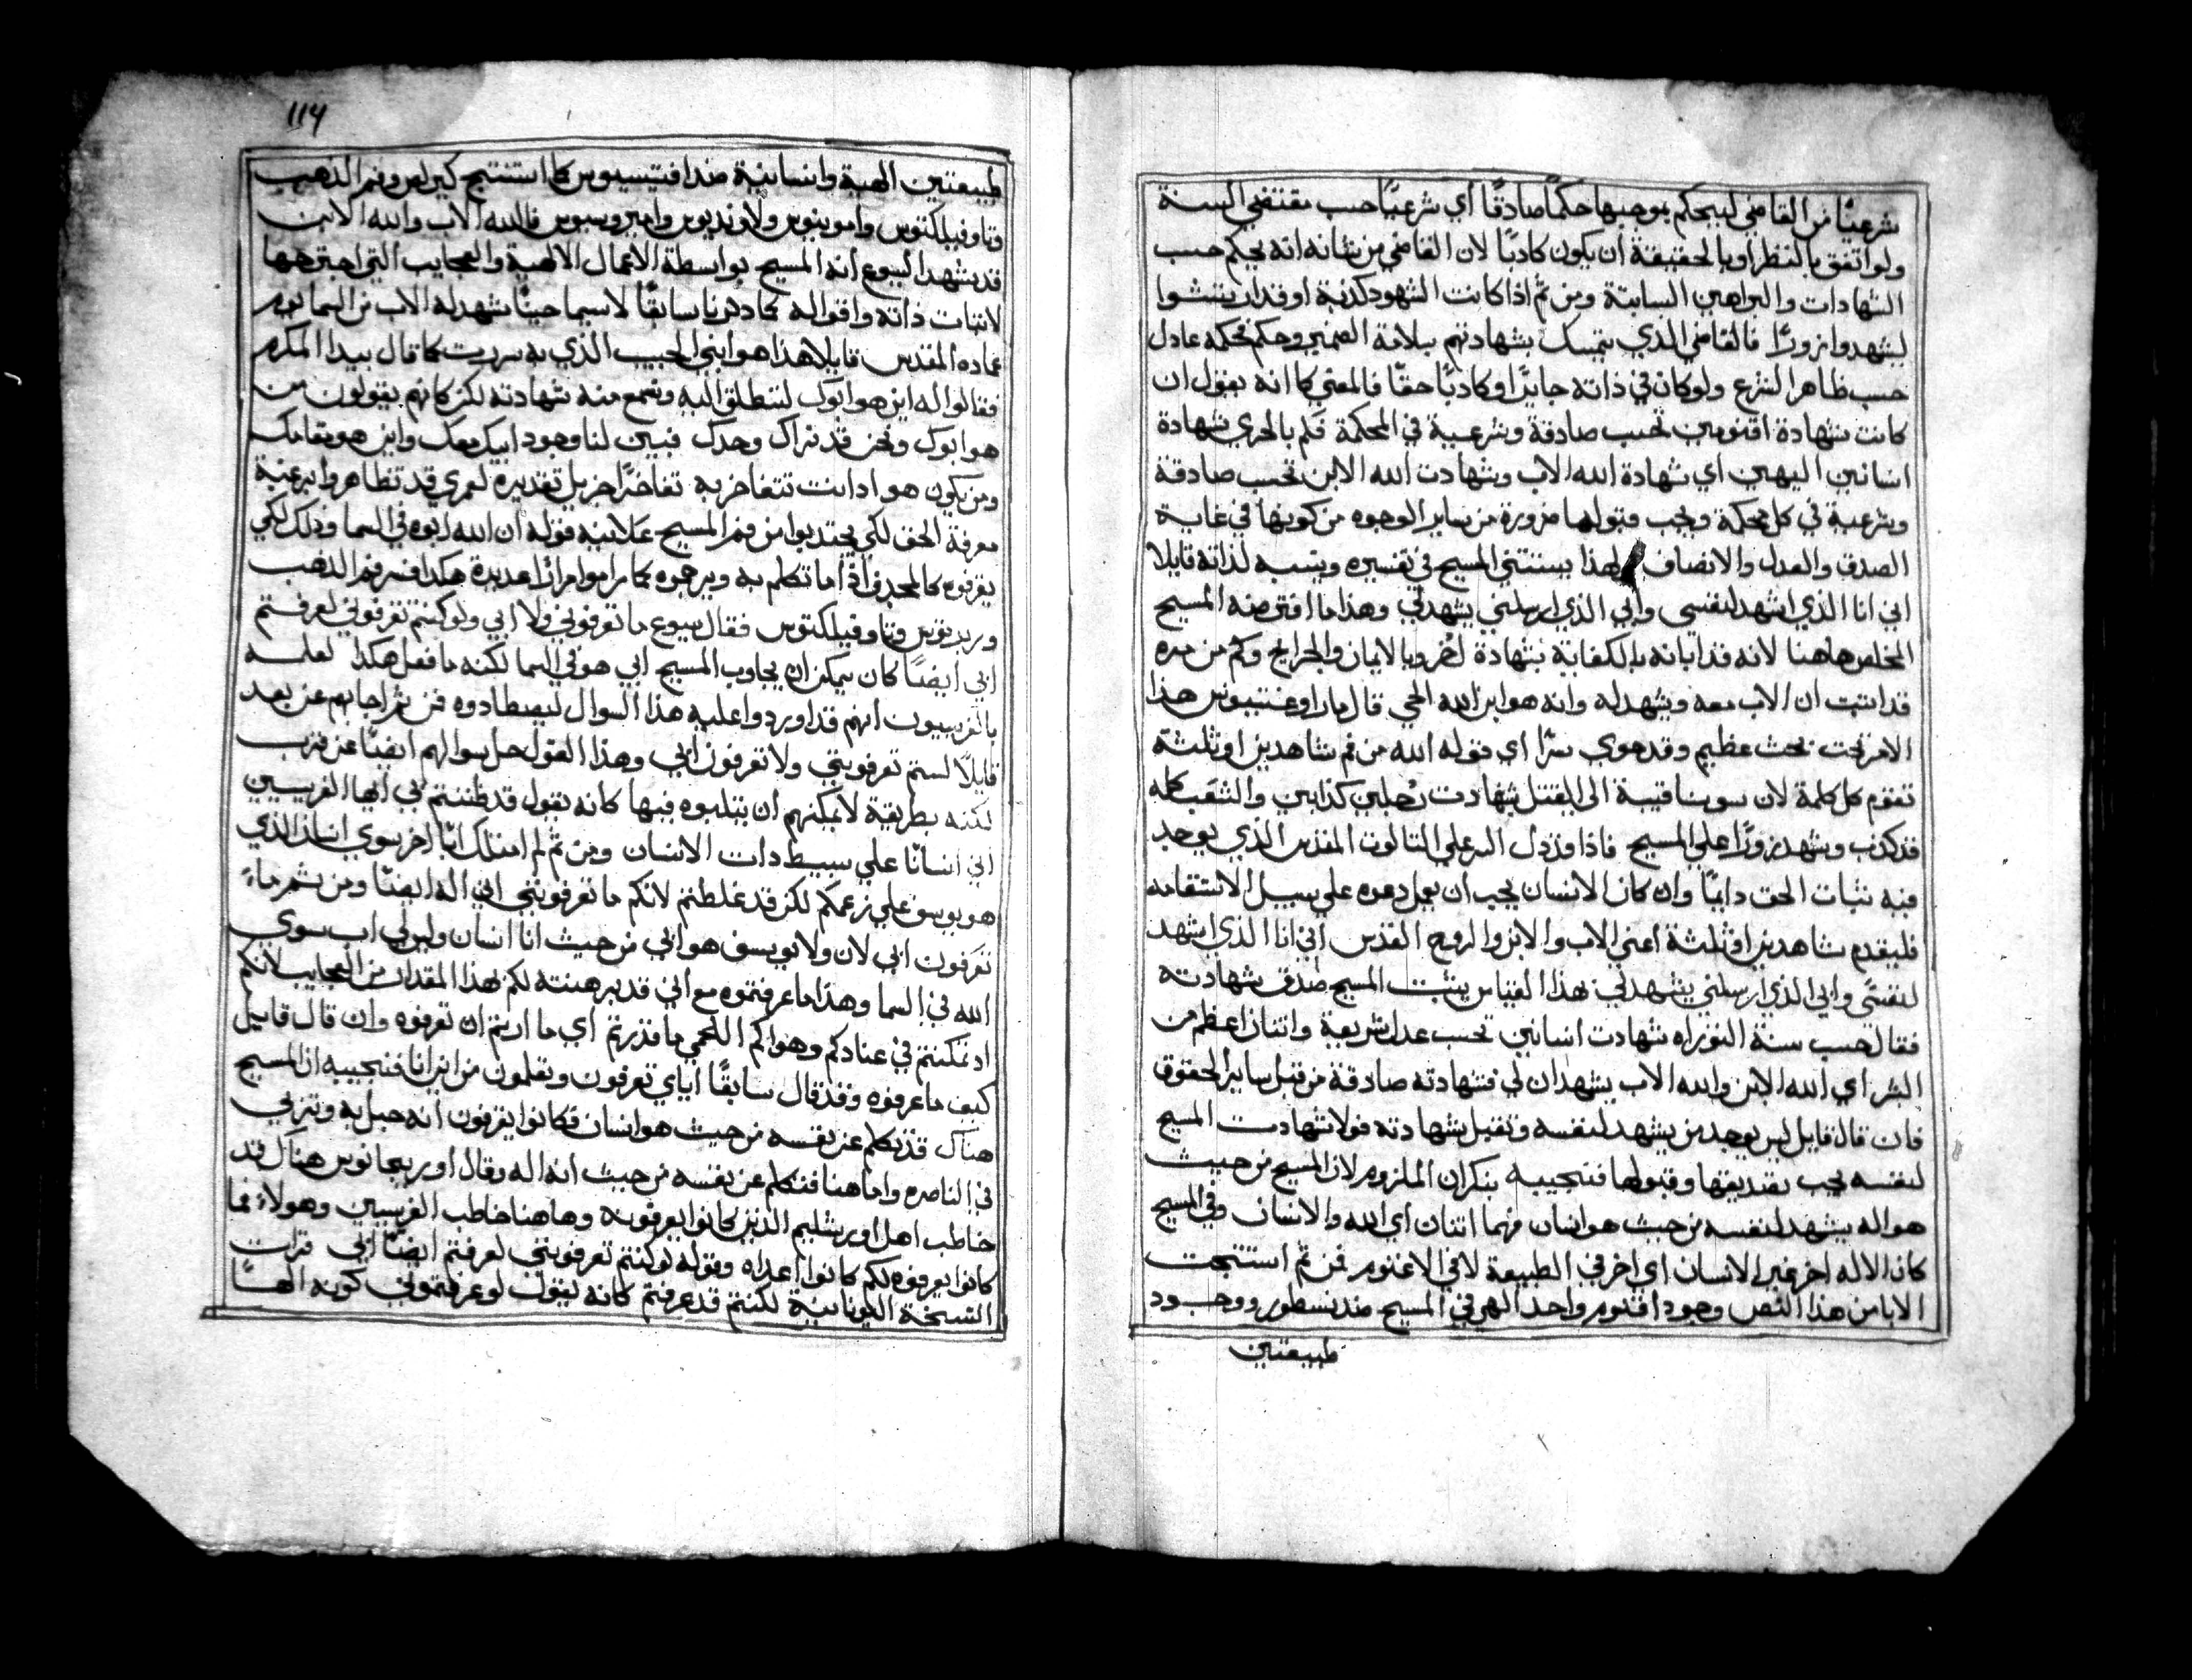 شرعيًا من القاضي ليحكم بموجبها حكمًا صادقًا أي شرعيًا حسب مقتضي السنة
ولو اتفق بالنظر او بالحقيقة ان يكون كادبًا لان القاضي من شانه انه يحكم حسب
الشهادات والبراهين السابتة ومن ثم اذا كانت الشهود كدبة او قد ارتشوا
ليشهدوا زورًا فالقاضي الذي يتمسك بشهادتهم بسلامة الضمير وحكم فحكمه عادل
حسب ظاهر الشرع ولو كان في ذاته جايرًا او كادبًا حقًا فالمعني كما انه يقول ان
كانت شهادة اقنومين تحسب صادقة وشرعية في المحكمة فكم بالحري شهادة
انسانين الهيين اي شهادة الله الاب وشهادت الله الابن تحسب صادقة
وشرعية في كل محكمة ويجب قبولها ضرورة من ساير الوجوه من كونها في غاية
الصدق والعدل والانصاف ولهذا يستتني المسيح في تفسيره وينسبه لذاته قايلا
اني انا الذي اشهد لنفسي وابي الذي ارسلني يشهد لي وهذا ما افترضه المسيح
المخلص هاهنا لانه قد ابانه بالكفاية بشهادة اخر وبالايمان والجرايح وكم من مره
قد اتبت ان الاب معه ويشهد له وانه هو ابن الله الحي قال مار اوغستينوس هذا
الامر تحت بحث عظيم وقد حوي سرًا اي قوله الله من فم شاهدين او ثلثة
تقوم كل كلمة لان سوسنا قيبة الي القتل بشهادت رجلين كذابين والشعب كله
قد كذب وشهد زورًا علي المسيح فاذا قد دل السر علي التالوت المقدس الذي يوجد
فيه تبات الحق دايمًا وان كان الانسان يجب ان يعمل دعوه علي سبيل الاستقامه
فليقدم شاهدين او ثلثة اعني الاب والابن والروح القدس اني انا الذي اشهد
لنفسي وابي الذي ارسلني يشهد لي بهذا القياس يتبت المسيح صدق شهادته
فقال حسب سنة التوراه شهادت انسانين تحسب عدل شريعة واتنان اعظم من
البشر اي الله الابن والله الاب يشهدان لي فشهادته صادقة من قبل ساير الحقوق
فان قال قايل ليس يوجد من يشهد لنفسه وتقبل شهادته فولا شهادت المسيح
لنفسه يجب تصديقها وقبولها فنجيبه بنكران الملزوم لان المسيح من حيث
هو اله يشهد لنفسه من حيث هو انسان فهما اتنان اي الله والانسان وفي المسيح
كان الاله اخر غير الانسان اي اخر في الطبيعة لا في الاقنوم فمن ثم استنتجت
الابا من هذا النص وجود اقنوم واحد الهي في المسيح ضد نسطور ووجود
طبيعتين
114
طبيعتين الهية وانسانية ضد افتيشيوس كما استنتج كيرلس وفم الذهب
وتاوفيلكتوس وامونيوس ولاونديوس وامبروسيوس فالله الاب والله الابن
قد يشهد ليسوع انه المسيح بواسطة الاعمال الالهية والعجايب التي اجترحها
لاتبات ذاته واقواله كما دكرنا سابقًا لا سيما حينًا شهد له الاب من السما يوم
عماده المقدس قايلا هذا هو ابني الحبيب الذي به سررت كما قال بيدا المكرم
فقالوا له اين هو ابوك لننطلق اليه ونسمع منه شهادته لكن كانهم يقولون من
هو ابوك ونحن قد نراك وحدك فبين لنا وجود ابيك معك واين هو مقامك
ومن يكون هو ادا انت تتفاخر به تفاخرًا جزيل تقديره لعمري قد تظاهروا برغبة
معرفة الحق لكي يجتدبوا من فم المسيح علانية قوله ان الله ابوه في السما وذلك لكي
يعرفوه كالمجدف اذا ما تكلم به ويرجموه كما راموا مرارًا عديدة هكذا فسر فم الذهب
وربدتوس وتاوفيلكتوس فقال يسوع ما تعرفوني ولا ابي ولو كنتم تعرفوني لعرفتم
ابي ايضًا كان يمكن ان يجاوب المسيح ابي هو في السما لكنه ما فعل هكدا لعلمه
بالفريسيون انهم قد اوردوا عليه هذا السوال ليصطادوه فمن ثم اجابهم عن بعد
قايلًا لستم تعرفوني ولا تعرفون ابي وهذا القول حل سوالهم ايضًا عن قرب
لكنه بطريقة لا يمكنهم ان يتلبوه فيها كانه يقول قد ظننتم بي ايها الفريسيين
اني انسانًا علي بسيط دات الانسان ومن ثم لم امتلك ابًا اخر سوي انسان الذي
هو يوسف علي زعمكم لكن قد غلطتم لانكم ما تعرفوني اني اله ايضًا ومن ثم ما
تعرفون ابي لان ولا يوسف هو ابي من حيث انا انسان وليس لي اب سوي
الله في السما وهذا ما عرفتموه مع اني قد برهنته لكم بهذا المقدار من العجايب لانكم
اد تمكنتم في عنادكم وهواكم اللحمي ما قدرتم أي ما اردتم ان تعرفوه وان قال قايل
كيف ما عرفوه وقد قال سابقًا اياي تعرفون وتعلمون من اين انا فنجيبه ان المسيح
هناك قد تكلم عن نفسه من حيث هو انسان فكانوا يعرفون انه حبل به وتربي
في الناصره واما هنا فتكلم عن نفسه من حيث انه اله وقال اوريجانوس هناك قد
خاطب اهل اورشليم الذين كانوا يعرفونه وهاهنا خاطب الفريسيين وهولاء فما
كانوا يعرفوه لكم كانوا اعداه وقوله لو كنتم تعرفوني لعرفتم ايضًا ابي قرات
النسخة اليونانية لكنتم قد عرفتم كانه يقول لو عرفتموني كونه الهًا